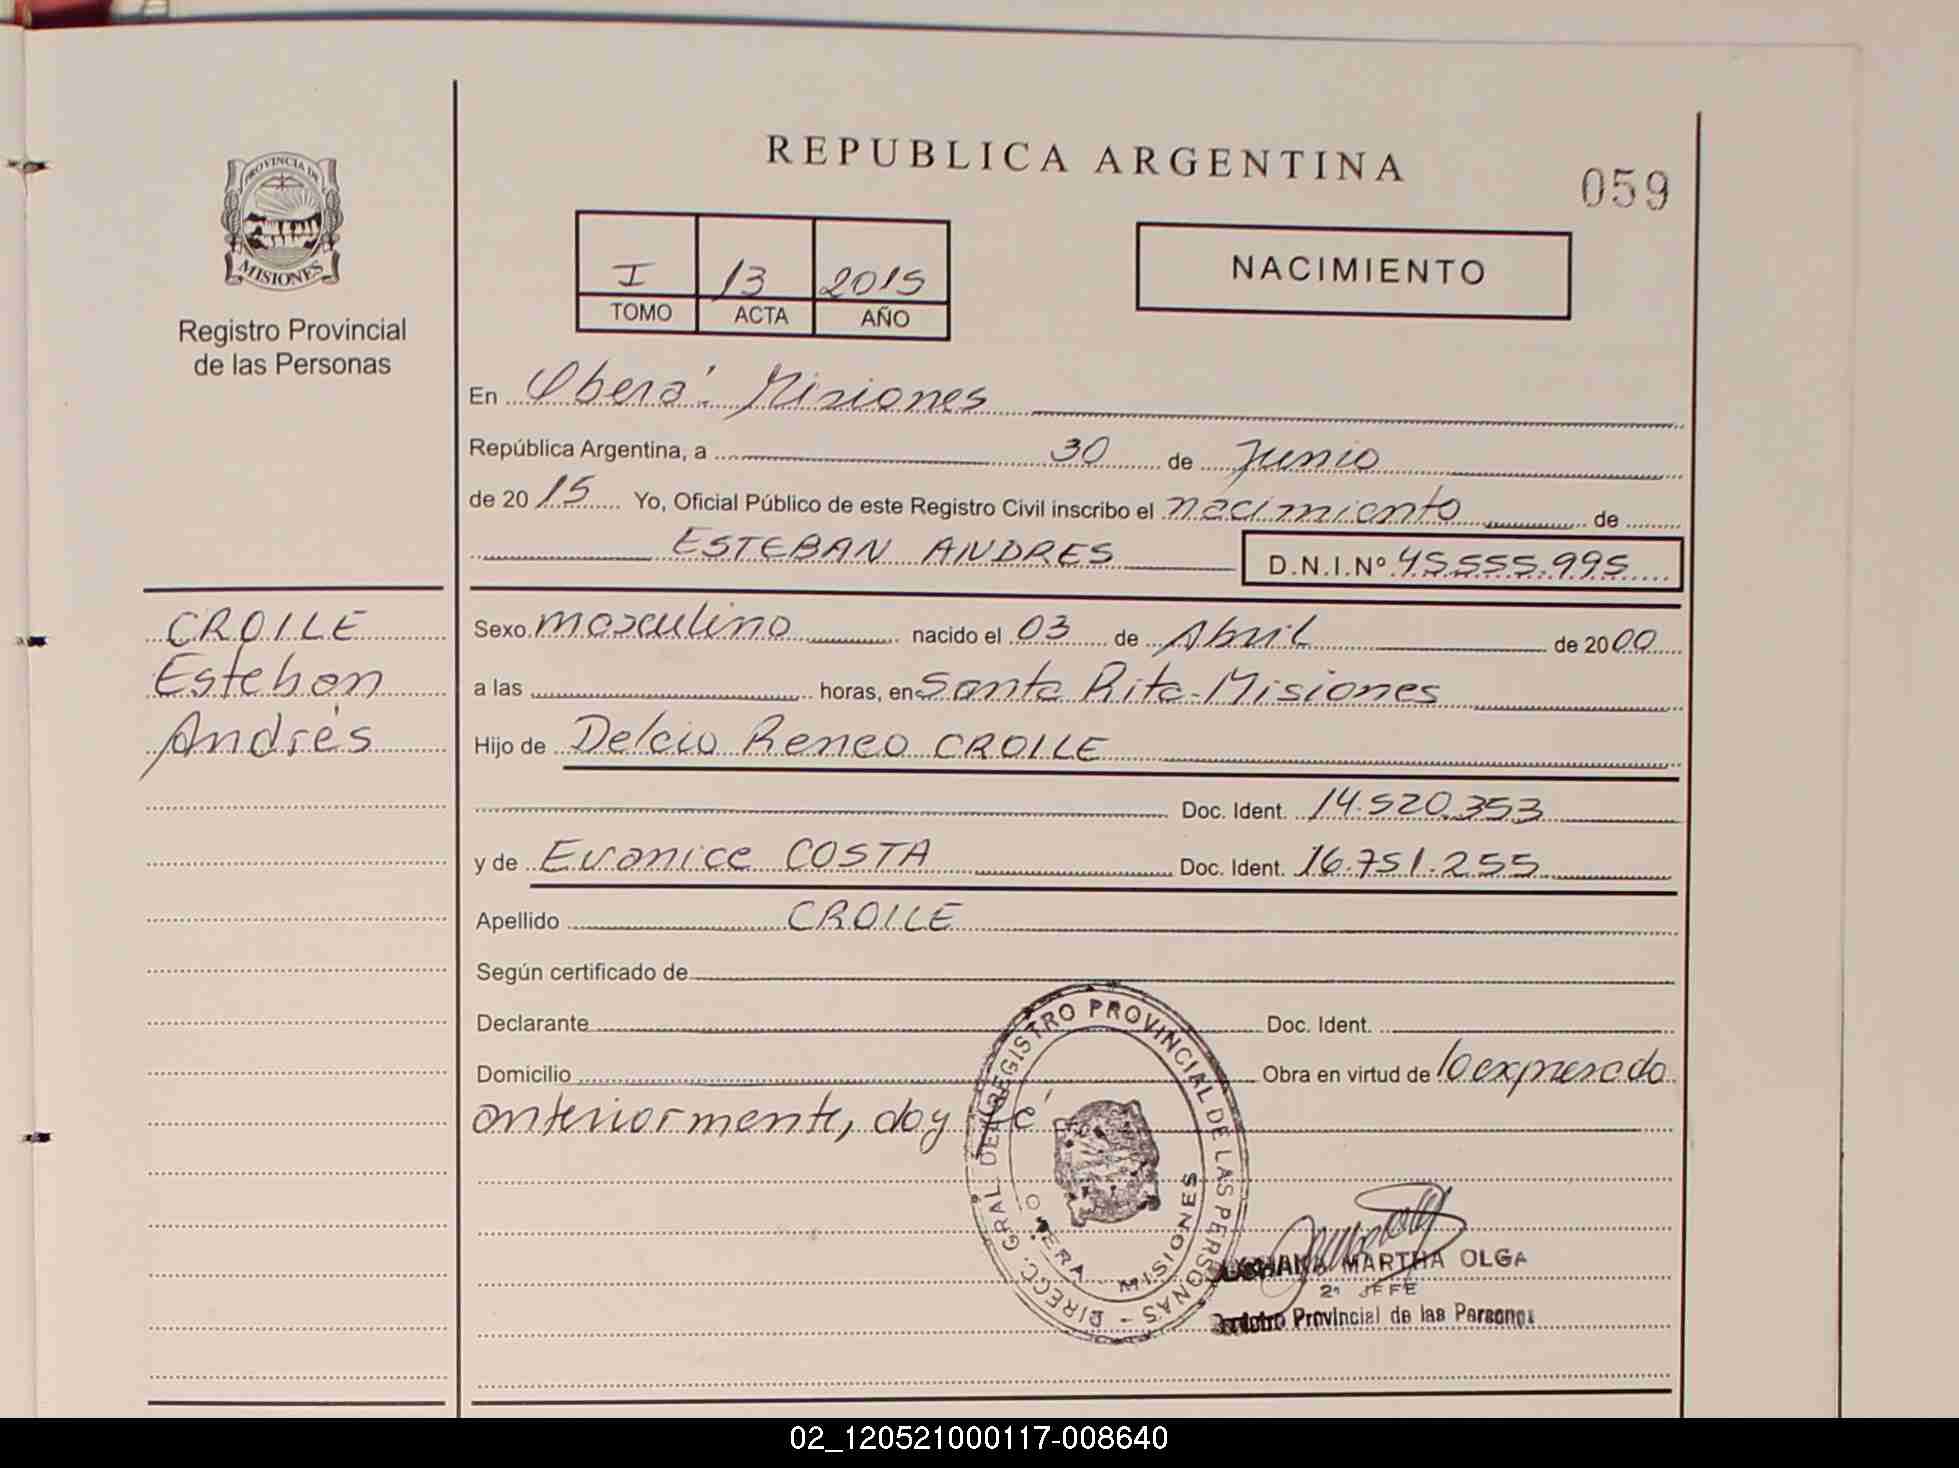 PROVINCIA DE
MISIONES
Registro Provincial
de las Personas
CROILE
Esteban
Andrés
REPUBLICA ARGENTINA
059
I 13 2015
TOMO ACTA AÑO
NACIMIENTO
En Oberá. Misiones
República Argentina, a 30 de Junio
de 2015 Yo, Oficial Público de este Registro Civil inscribo el nacimiento de
ESTEBAN ANDRES D.N.I.Nº 45.555.995
Sexo masculino nacido el 03 de Abril de 2000
a las horas, en Santa Rita-Misiones
Hijo de Delcio Reneo CROILE
Doc. Ident. 14.520.353
y de Evanice COSTA Doc. Ident. 16.751.255
Apellido CROILE
Según certificado de
Declarante Doc. Ident.
Domicilio Obra en virtud de lo expresado
anteriormente, doy fé
DIRECC. GRAL. DEL REGISTRO PROVINCIAL DE LAS PERSONAS -
OBERA - MISIONES
MARTHA OLGA
2º JEFE
Registro Provincial de las Personas
02_120521000117-008640